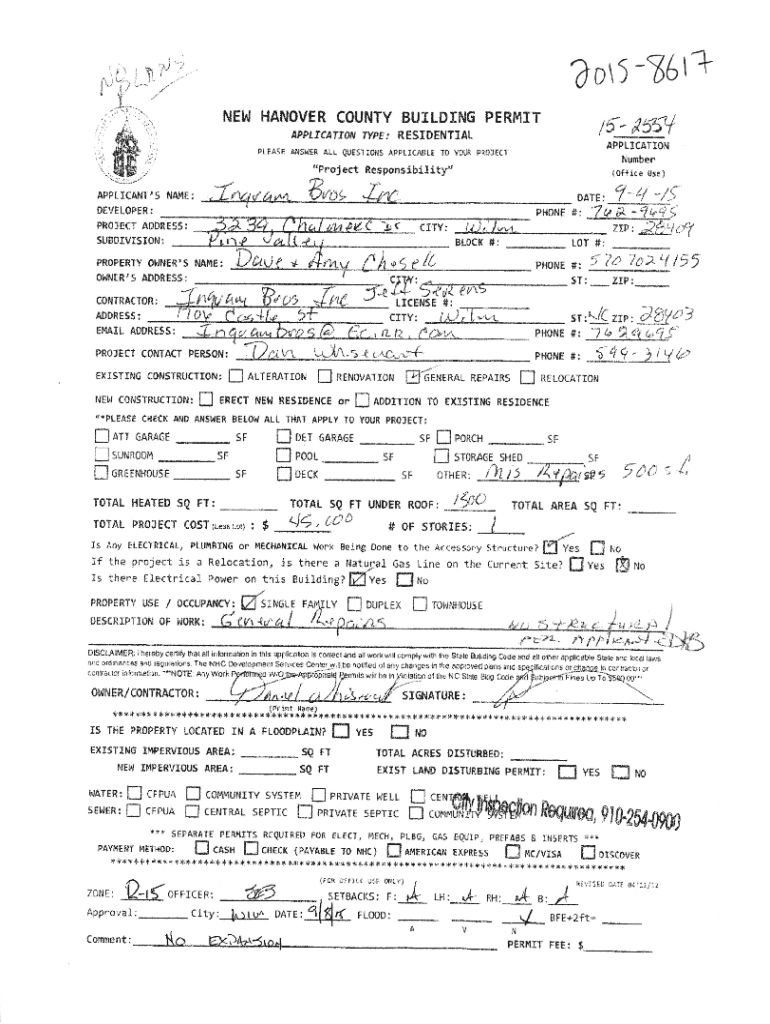 2015-8617
NEW HANOVER COUNTY BUILDING PERMIT
15-2554
APPLICATION TYPE: RESIDENTIAL
PLEASE ANSWER ALL QUESTIONS APPLICABLE TO YOUR PROJECT
APPLICATION
Number
"Project Responsibility"
(Office Use)
APPLICANT'S NAME: Ingram Bros Inc DATE: 9-4-15
DEVELOPER: PHONE #: 762-9695
PROJECT ADDRESS: 3239 CITY: Wilm ZIP: 28409
SUBDIVISION: Pine Valley BLOCK #: LOT #:
PROPERTY OWNER'S NAME: Dave & Amy Chosell PHONE #: 570 702 4155
OWNER'S ADDRESS: CITY: ST: ZIP:
CONTRACTOR: Ingram Bros Inc Jeff LICENSE #:
ADDRESS: Castle St CITY: Wilm ST: NC ZIP: 28403
EMAIL ADDRESS: Ingrambros@Ec.rr.com PHONE #: 7629695
PROJECT CONTACT PERSON: Dan Whisenant PHONE #: 599-3146
EXISTING CONSTRUCTION: ALTERATION RENOVATION GENERAL REPAIRS RELOCATION
NEW CONSTRUCTION: ERECT NEW RESIDENCE or ADDITION TO EXISTING RESIDENCE
**PLEASE CHECK AND ANSWER BELOW ALL THAT APPLY TO YOUR PROJECT:
ATT GARAGE SF DET GARAGE SF PORCH SF
SUNROOM SF POOL SF STORAGE SHED SF
GREENHOUSE SF DECK SF OTHER: Mis Repairs 500
TOTAL HEATED SQ FT: TOTAL SQ FT UNDER ROOF: TOTAL AREA SQ FT:
TOTAL PROJECT COST (Less Lot) : $ 45,000 # OF STORIES: 1
Is Any ELECTRICAL, PLUMBING or MECHANICAL Work Being Done to the Accessory Structure? Yes No
If the project is a Relocation, is there a Natural Gas Line on the Current Site? Yes No
Is there Electrical Power on this Building? Yes No
PROPERTY USE / OCCUPANCY: SINGLE FAMILY DUPLEX TOWNHOUSE
DESCRIPTION OF WORK: General Repairs NO STRUCTURAL
PER APPLICANT
DISCLAIMER: I hereby certify that all information in this application is correct and all work will comply with the State Building Code and all other applicable State and local laws
and ordinances and regulations. The NHC Development Services Center will be notified of any changes in the approved plans and specifications or change in contractor or
contractor information. ***NOTE: Any Work Performed W/O the Appropriate Permits will be in Violation of the NC State Bldg Code and Subject to Fines Up To $500.00***
OWNER/CONTRACTOR: Daniel Whisenant SIGNATURE:
(Print Name)
IS THE PROPERTY LOCATED IN A FLOODPLAIN? YES NO
EXISTING IMPERVIOUS AREA: SQ FT TOTAL ACRES DISTURBED:
NEW IMPERVIOUS AREA: SQ FT EXIST LAND DISTURBING PERMIT: YES NO
WATER: CFPUA COMMUNITY SYSTEM PRIVATE WELL
City Inspection Required, 910-254-0900
SEWER: CFPUA CENTRAL SEPTIC PRIVATE SEPTIC COMMUNITY SYSTEM
*** SEPARATE PERMITS REQUIRED FOR ELECT, MECH, PLBG, GAS EQUIP, PREFABS & INSERTS ***
PAYMENT METHOD: CASH CHECK (PAYABLE TO NHC) AMERICAN EXPRESS MC/VISA DISCOVER
(FOR OFFICE USE ONLY)
ZONE: R-15 OFFICER: SETBACKS: F: LH: RH: B:
Approval: City: Wilm DATE: 9/8/15 FLOOD: BFE+2ft=
A V N
Comment: No EXPANSION PERMIT FEE: $